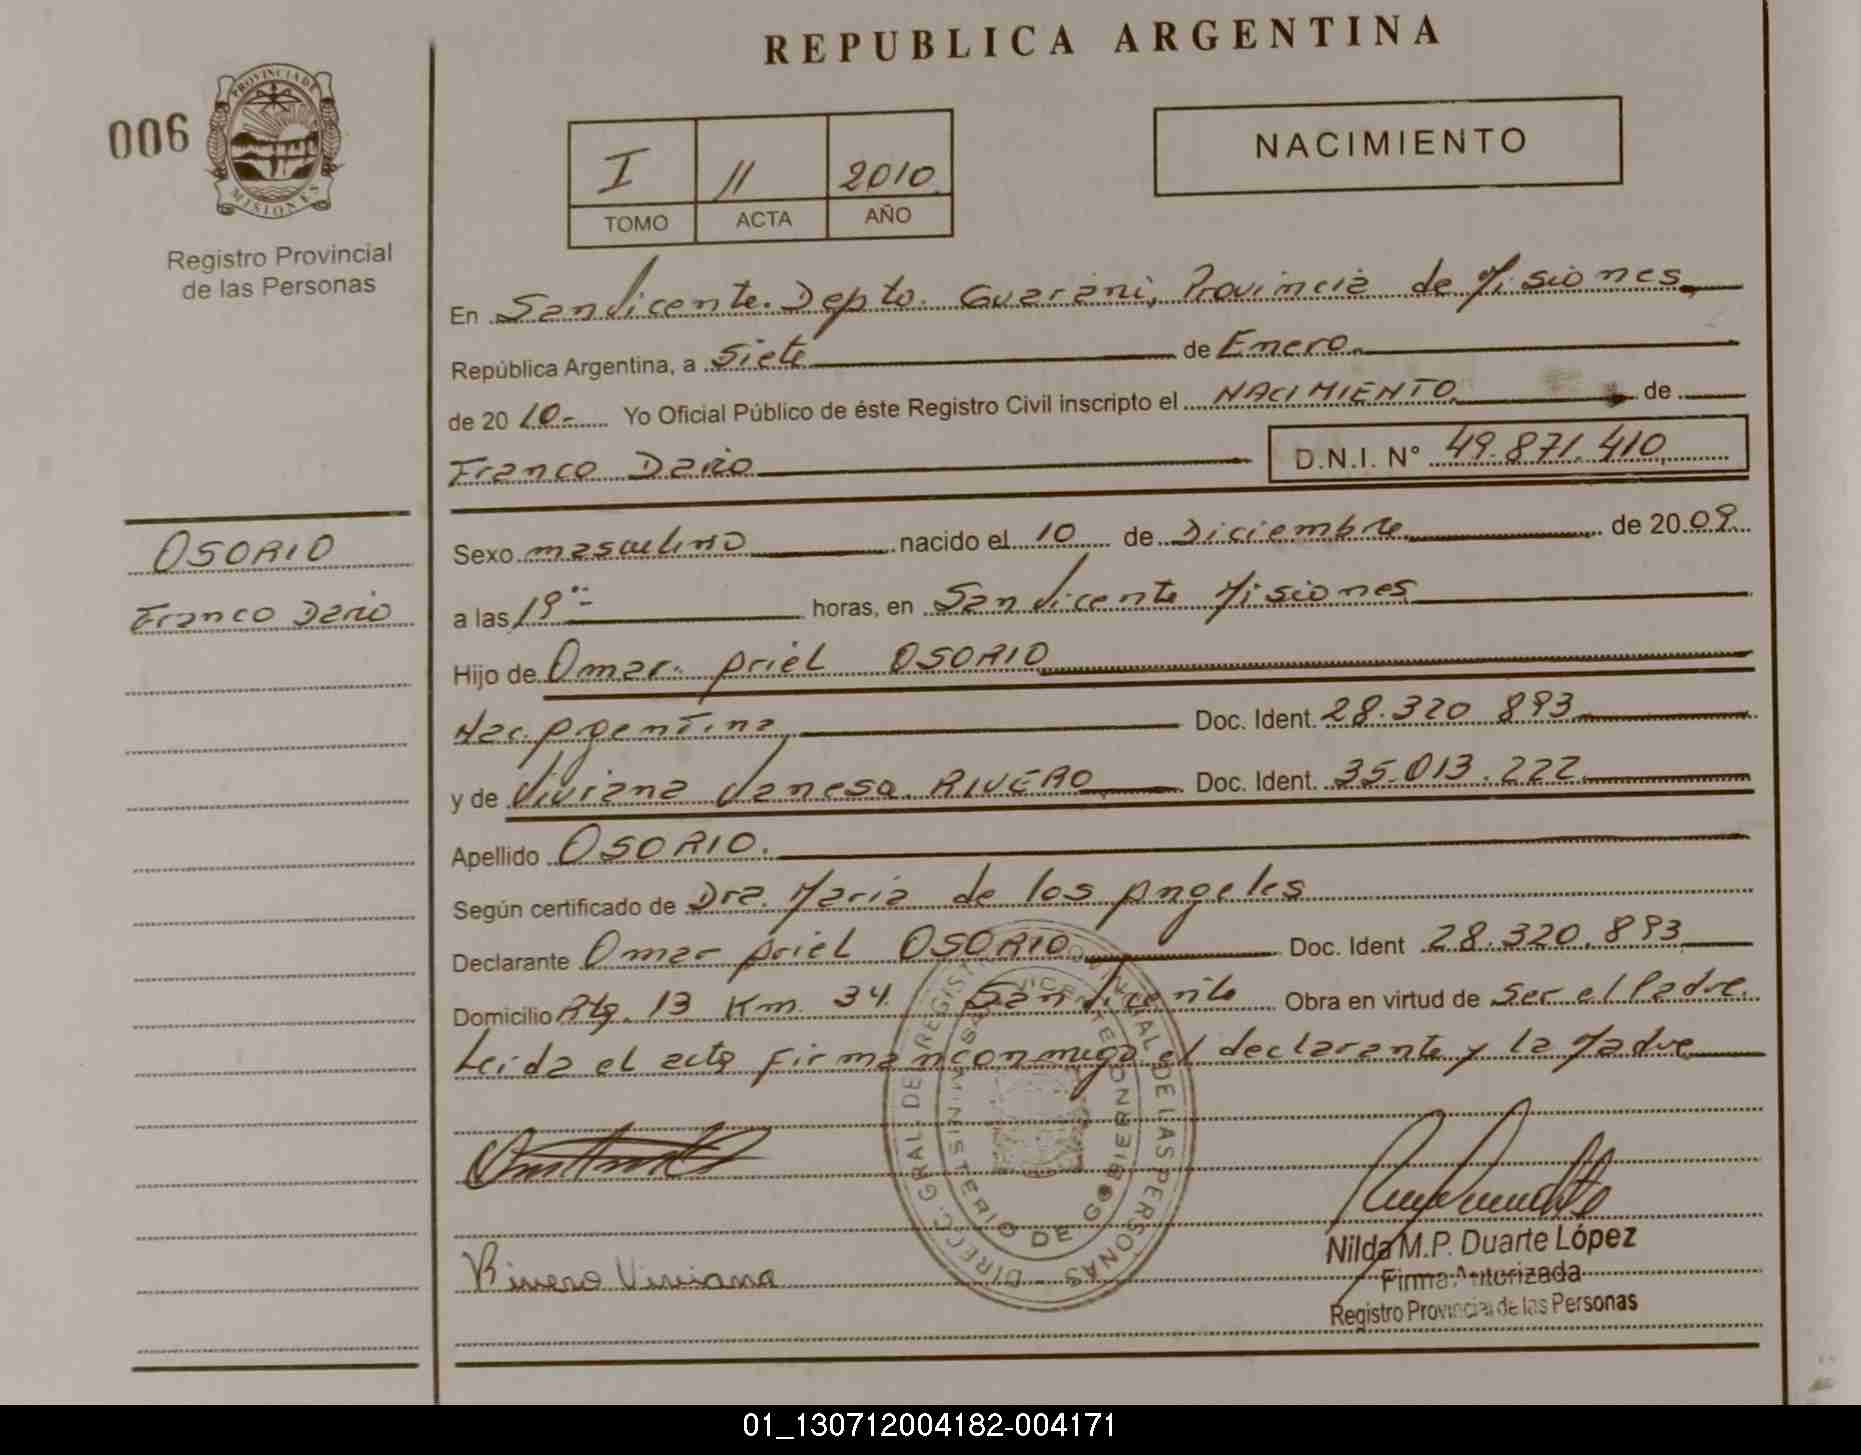 REPUBLICA ARGENTINA
006
PROVINCIA DE
MISIONES
Registro Provincial
de las Personas
I 11 2010
TOMO ACTA AÑO
NACIMIENTO
En San Vicente. Depto. Guarani, Provincia de Misiones
República Argentina, a Siete de Enero
de 20 10.- Yo Oficial Público de éste Registro Civil inscripto el NACIMIENTO de
Franco Dario D.N.I. N° 49.871.410
OSORIO
Franco Dario
Sexo masculino nacido el 10 de Diciembre de 20 09
a las 19 horas, en San Vicente Misiones
Hijo de Omar Ariel OSORIO
Nac. Argentina Doc. Ident. 28.320 893
y de Viviana Vanesa RIVERO Doc. Ident. 35.013.222
Apellido OSORIO.
Según certificado de Dra. Maria de los Angeles
Declarante Omar Ariel OSORIO Doc. Ident 28.320.893
Domicilio Rta. 13 Km. 34. San Vicente Obra en virtud de Ser el Padre
Leida el acta firman conmigo el declarante y la Madre
DIRECC. GRAL. DE REGISTRO PROVINCIAL DE LAS PERSONAS
MINISTERIO DE GOBIERNO
SAN VICENTE
Rivero Viviana
Nilda M.P. Duarte López
Firma Autorizada
Registro Provincial de las Personas
01_130712004182-004171